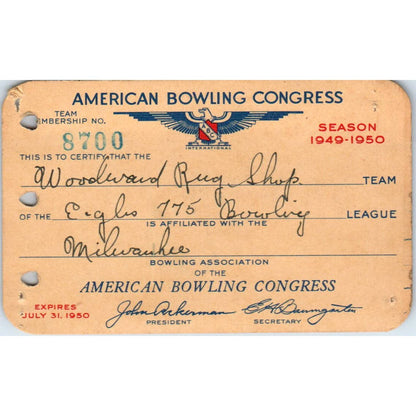 AMERICAN BOWLING CONGRESS
TEAM
MEMBERSHIP NO.
8700
ABC
INTERNATIONAL
SEASON
1949-1950
THIS IS TO CERTIFY THAT THE
Woodward Rug Shop TEAM
OF THE Eagles 775 Bowling LEAGUE
IS AFFILIATED WITH THE
Milwaukee
BOWLING ASSOCIATION
OF THE
AMERICAN BOWLING CONGRESS
EXPIRES
JULY 31, 1950
John Ackerman
PRESIDENT
E H Baumgarten
SECRETARY